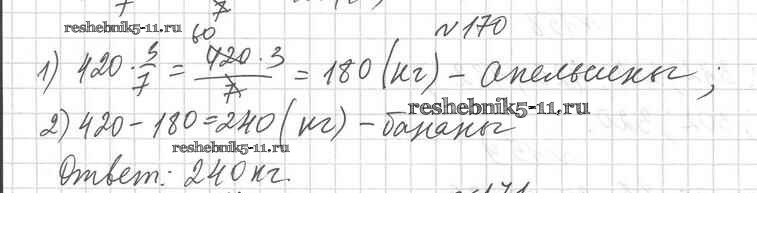 reshebnik5-11.ru
№170
1) 420 · 3/7 = 420 · 3 / 7 = 180 (кг) – апельсины;
60
reshebnik5-11.ru
2) 420 – 180 = 240 (кг) – бананы
reshebnik5-11.ru
Ответ: 240 кг.